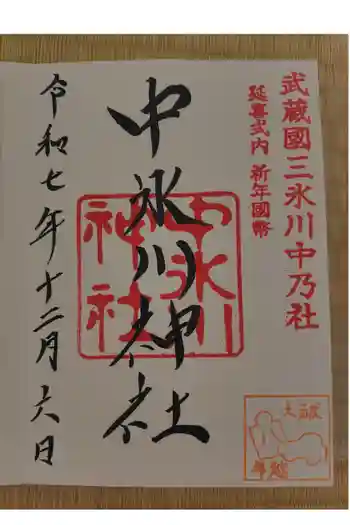 武蔵國三氷川中乃社
延喜式内 祈年國幣
中氷川神社
中氷川神社
令和七年十二月六日